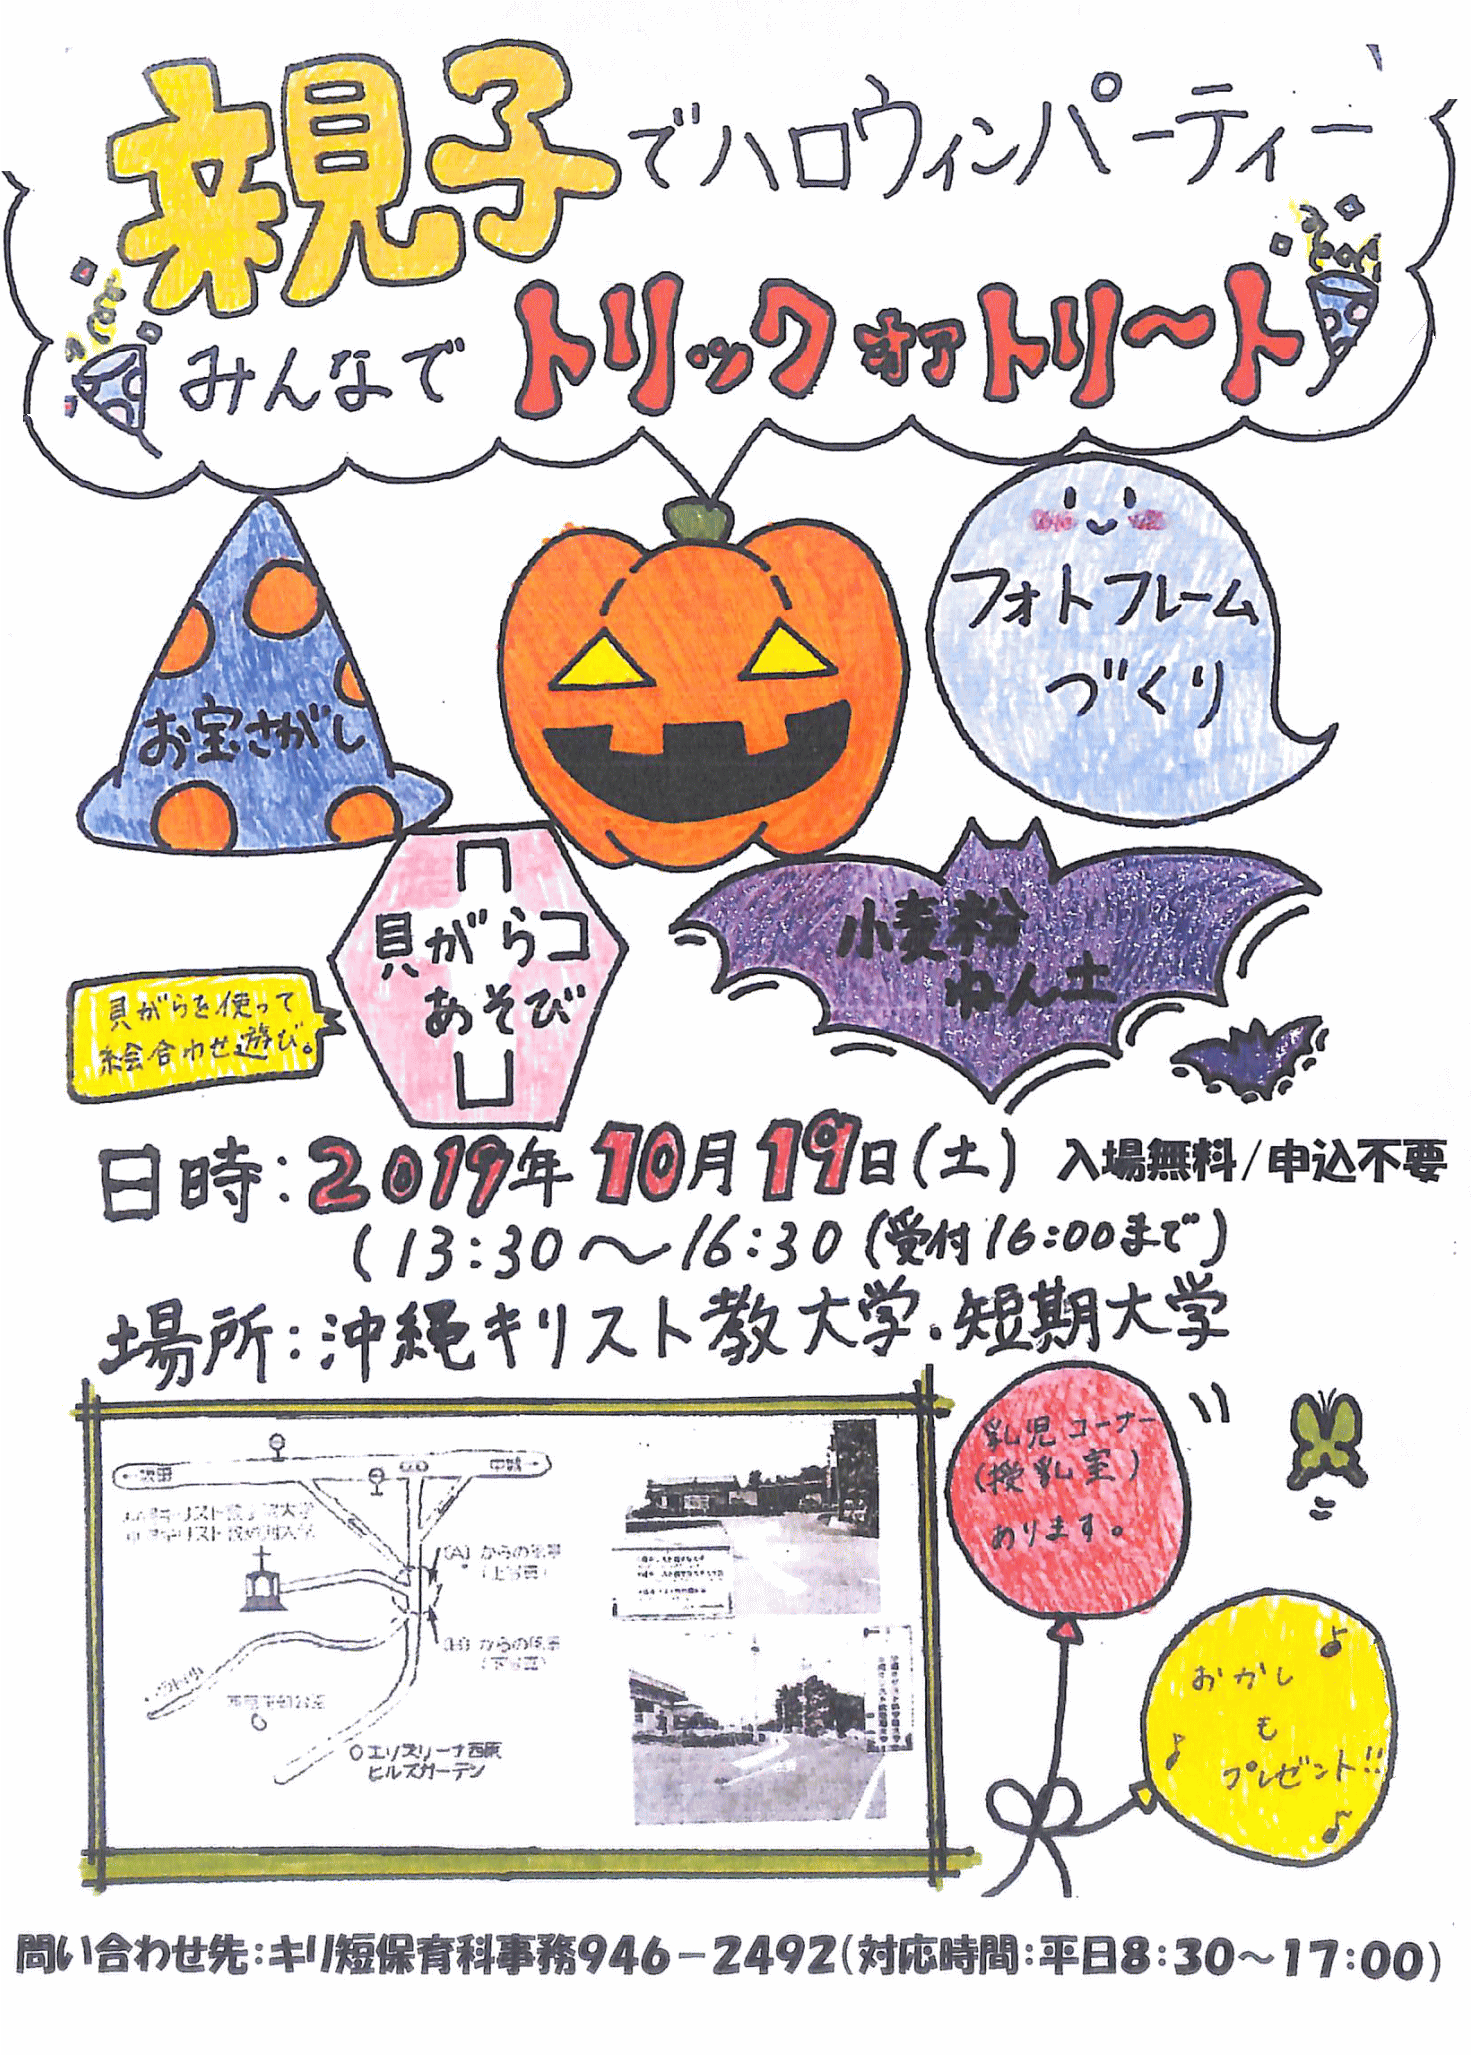 親子でハロウィンパーティー
みんなでトリックオアトリート
お宝さがし
フォトフレーム
づくり
貝がらコ
あそび
貝がらを使って
絵合わせ遊び。
小麦粉
ねん土
日時:2019年10月19日(土) 入場無料/申込不要
(13:30~16:30(受付16:00まで)
場所:沖縄キリスト教大学.短期大学
中城→
(A)からの風景
(上写真)
(B)からの風景
(下写真)
エリスリーナ西原
ヒルズガーデン
乳児コーナー
(授乳室)
あります。
おかし
も
プレゼント!!
問い合わせ先:キリ短保育科事務946-2492(対応時間:平日8:30~17:00)